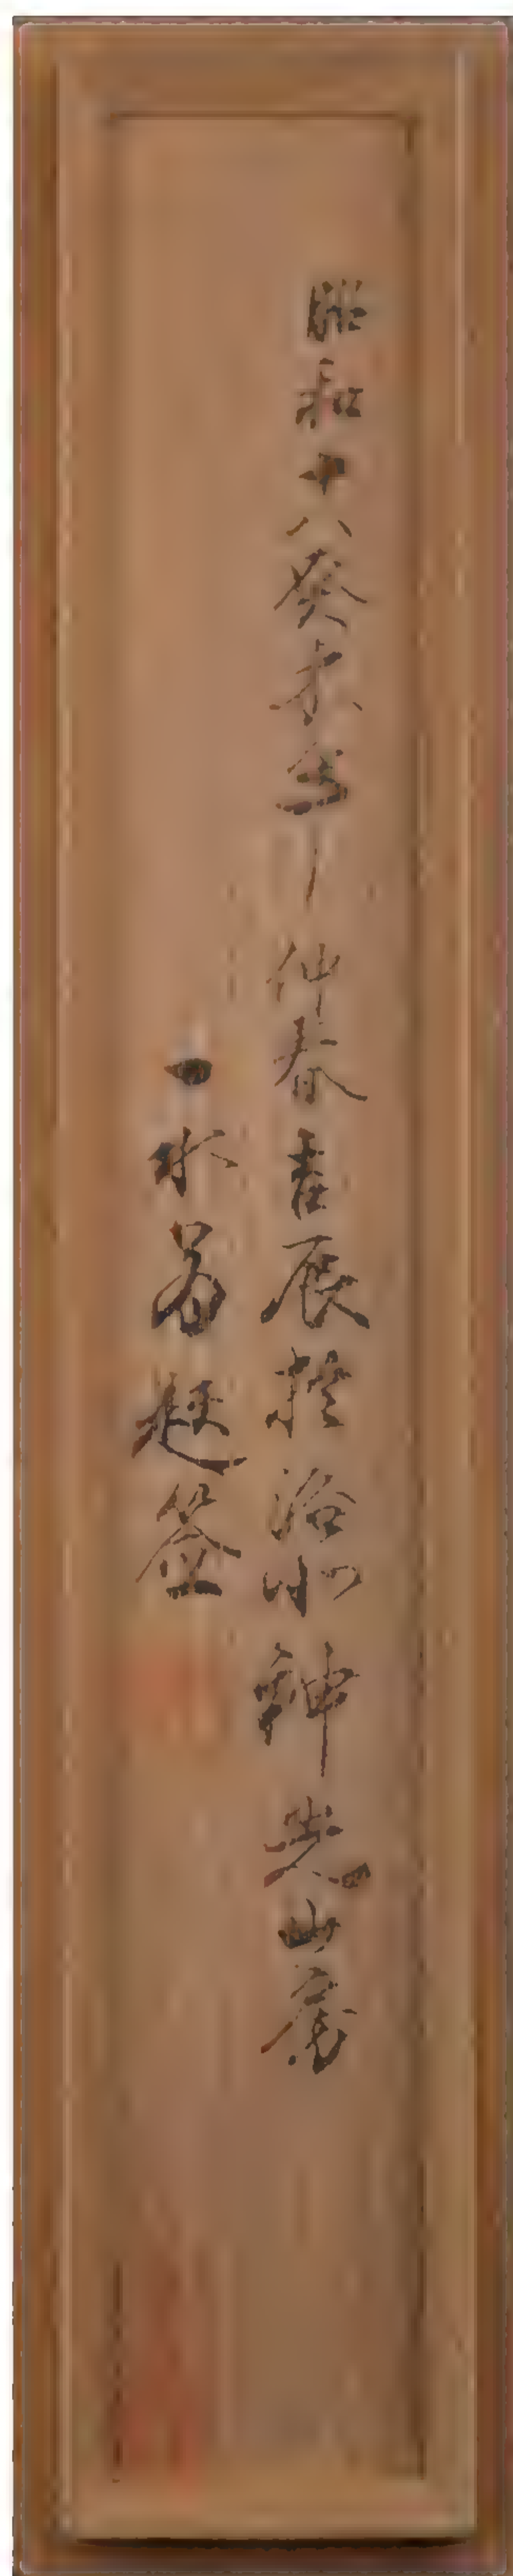 昭和十八癸未年仲春吉辰於洛北神光山房
一水為題簽